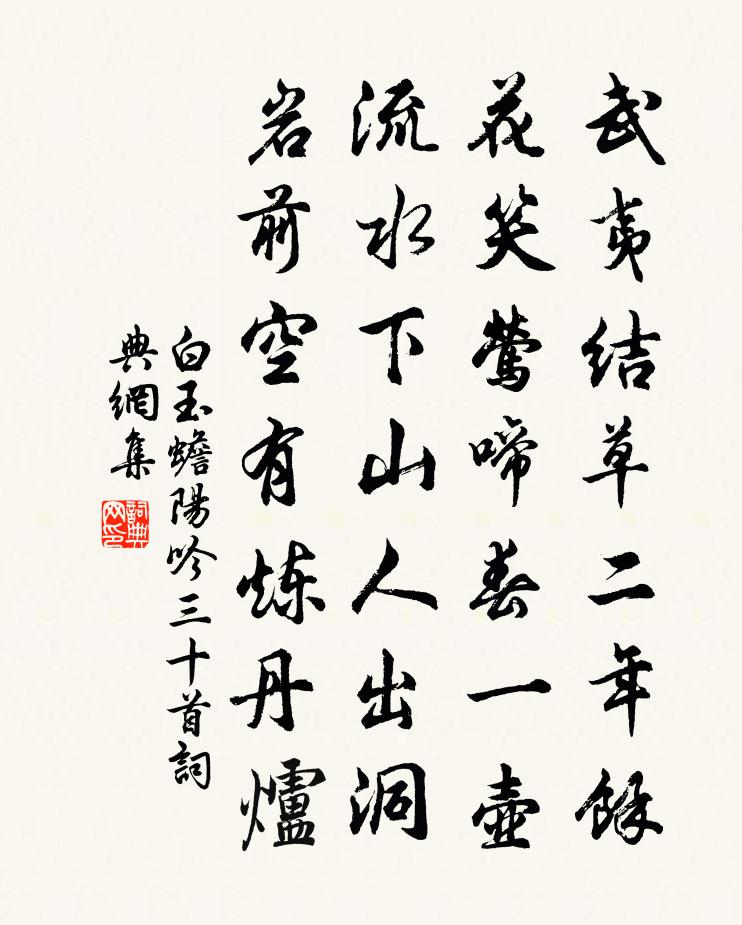 武夷結草二年餘
花笑鶯啼春一壺
流水下山人出洞
岩前空有炼丹爐
白玉蟾陽吟三十首詞
典網集
詞典
网印